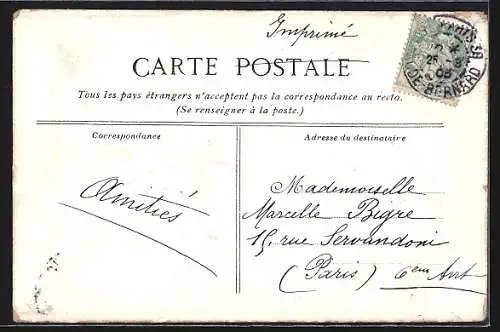 Imprimé
CARTE POSTALE
Tous les pays étrangers n'acceptent pas la correspondance au recto.
(Se renseigner à la poste.)
Correspondance
Amitiés
Adresse du destinataire
Mademoiselle
Marcelle Bigre
15, rue Servandoni
(Paris) 6em Arrt